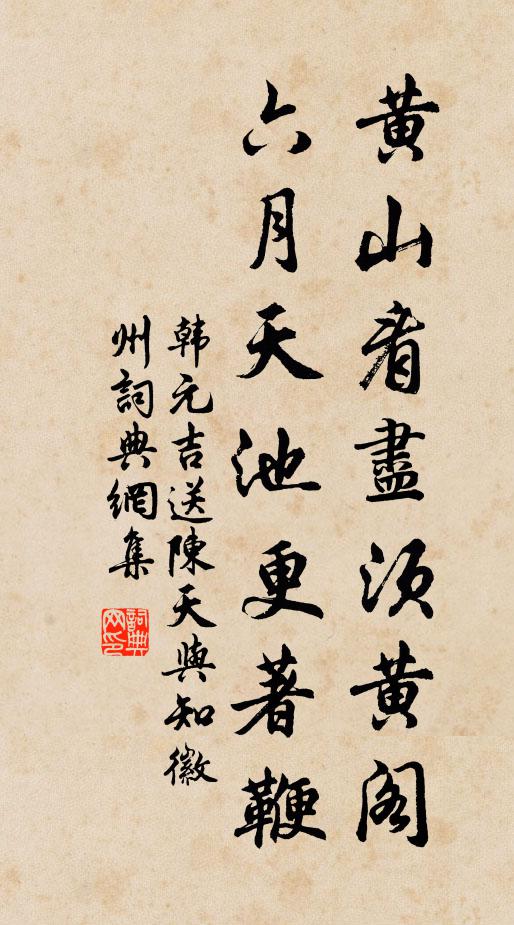 黄山看盡須黄閣
六月天池更著鞭
韩元吉送陳天與知徽
州詞典網集
詞典
网印